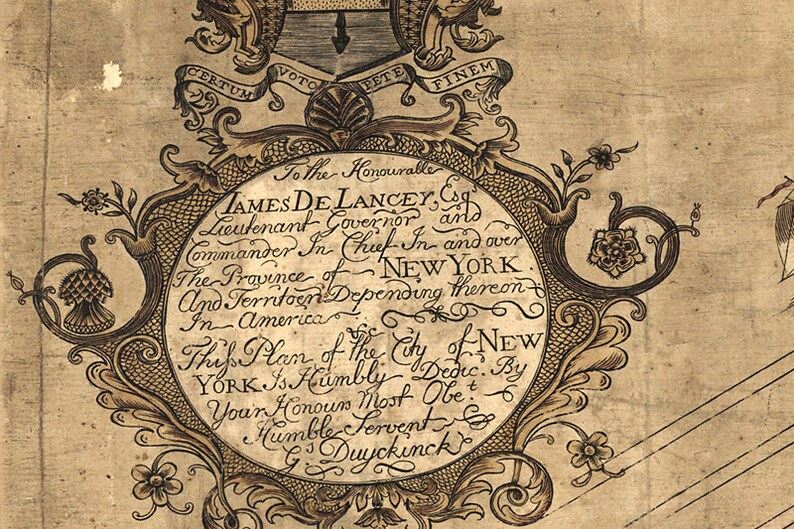 CERTUM VOTO PETE FINEM
To the Honourable
JAMES DE LANCEY, Esqr
Lieutenant Governor and
Commander In Chief In and over
The Province of NEW YORK
And Territoers Depending thereon
In America &c
This Plan of the City of NEW
YORK Is Humbly Dedic. By
Your Honours Most Obet.
Humble Servent
Gs Duyckinck